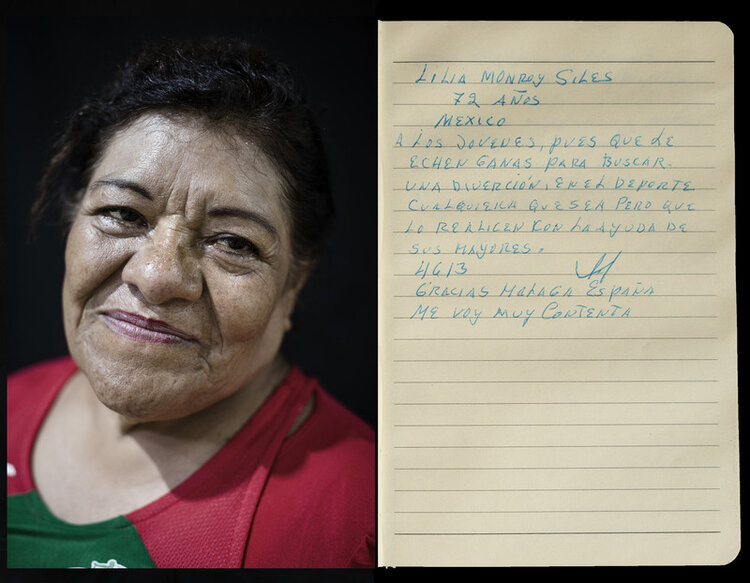 LILIA MONROY SILES
72 AÑOS
MEXICO
A LOS JOVENES, PUES QUE LE
ECHEN GANAS PARA BUSCAR.
UNA DIVERCIÓN, EN EL DEPORTE
CUALQUIERA QUE SEA PERO QUE
LO REALICEN CON LA AYUDA DE
SUS MAYORES.
4613
GRACIAS MALAGA ESPAÑA
ME VOY MUY CONTENTA